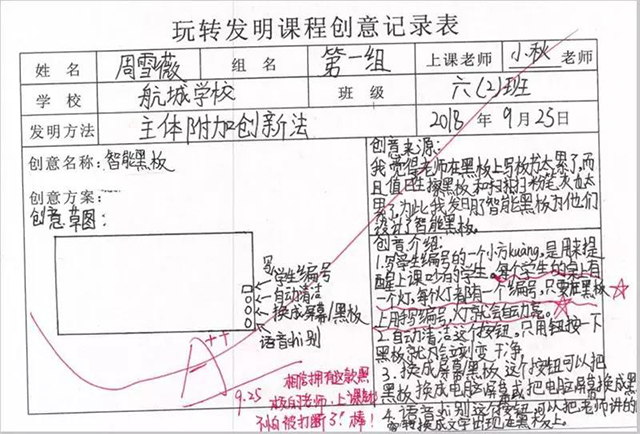 玩转发明课程创意记录表
姓名 周雪薇 组名 第一组 上课老师 小秋 老师
学校 航城学校 班级 六(2)班
发明方法 主体附加创新法 2018年9月25日
创意名称:智能黑板
创意方案:
创意草图:
写学生编号
自动清洁
换成屏幕/黑板
语音shi别
A++
9.25
相信拥有这款黑
板的老师,上课
不怕被打断了!棒!
创意来源:
我觉得老师在黑板上写板书太累了,而
且值日生擦黑板和扫粉笔灰也太
累了,为此我发明了智能黑板
智能黑板。
创意介绍:
1.写学生编号的一个小方kuàng,是用来提
醒上课吵的学生。每个学生的桌上有
一个灯,每个灯都有一个编号,只要在黑板
上用手写编号,灯就会自动亮。
2.自动清洁这个按钮,只用轻按一下
黑板就能立刻变干净。
3.换成屏幕/黑板这个按钮可以把
黑板换成电脑屏幕或把电脑屏幕换成黑板
4.语音shi别这个按钮可以把老师讲的
转换成文字出现在黑板上。